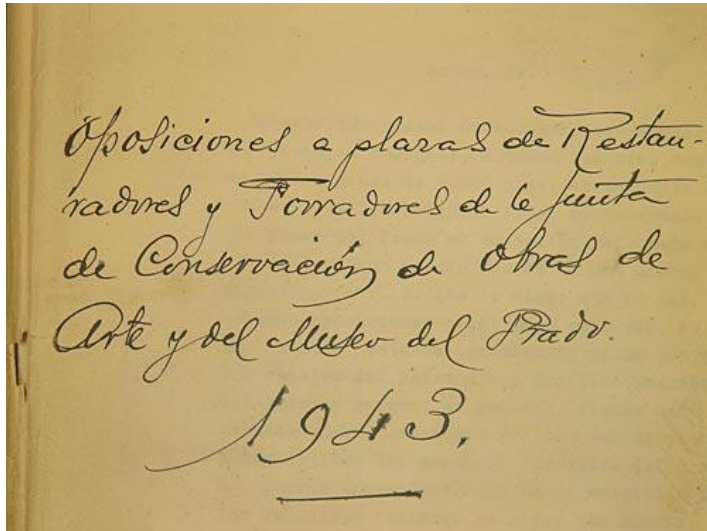 Oposiciones a plazas de Restau-
radores y Forradores de la Junta
de Conservación de Obras de
Arte y del Museo del Prado.
1943.